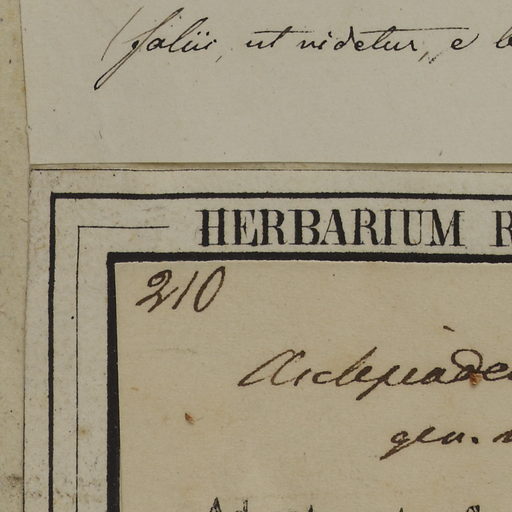 (foliis, ut videtur, e
HERBARIUM
210
Asclepiade
gen.